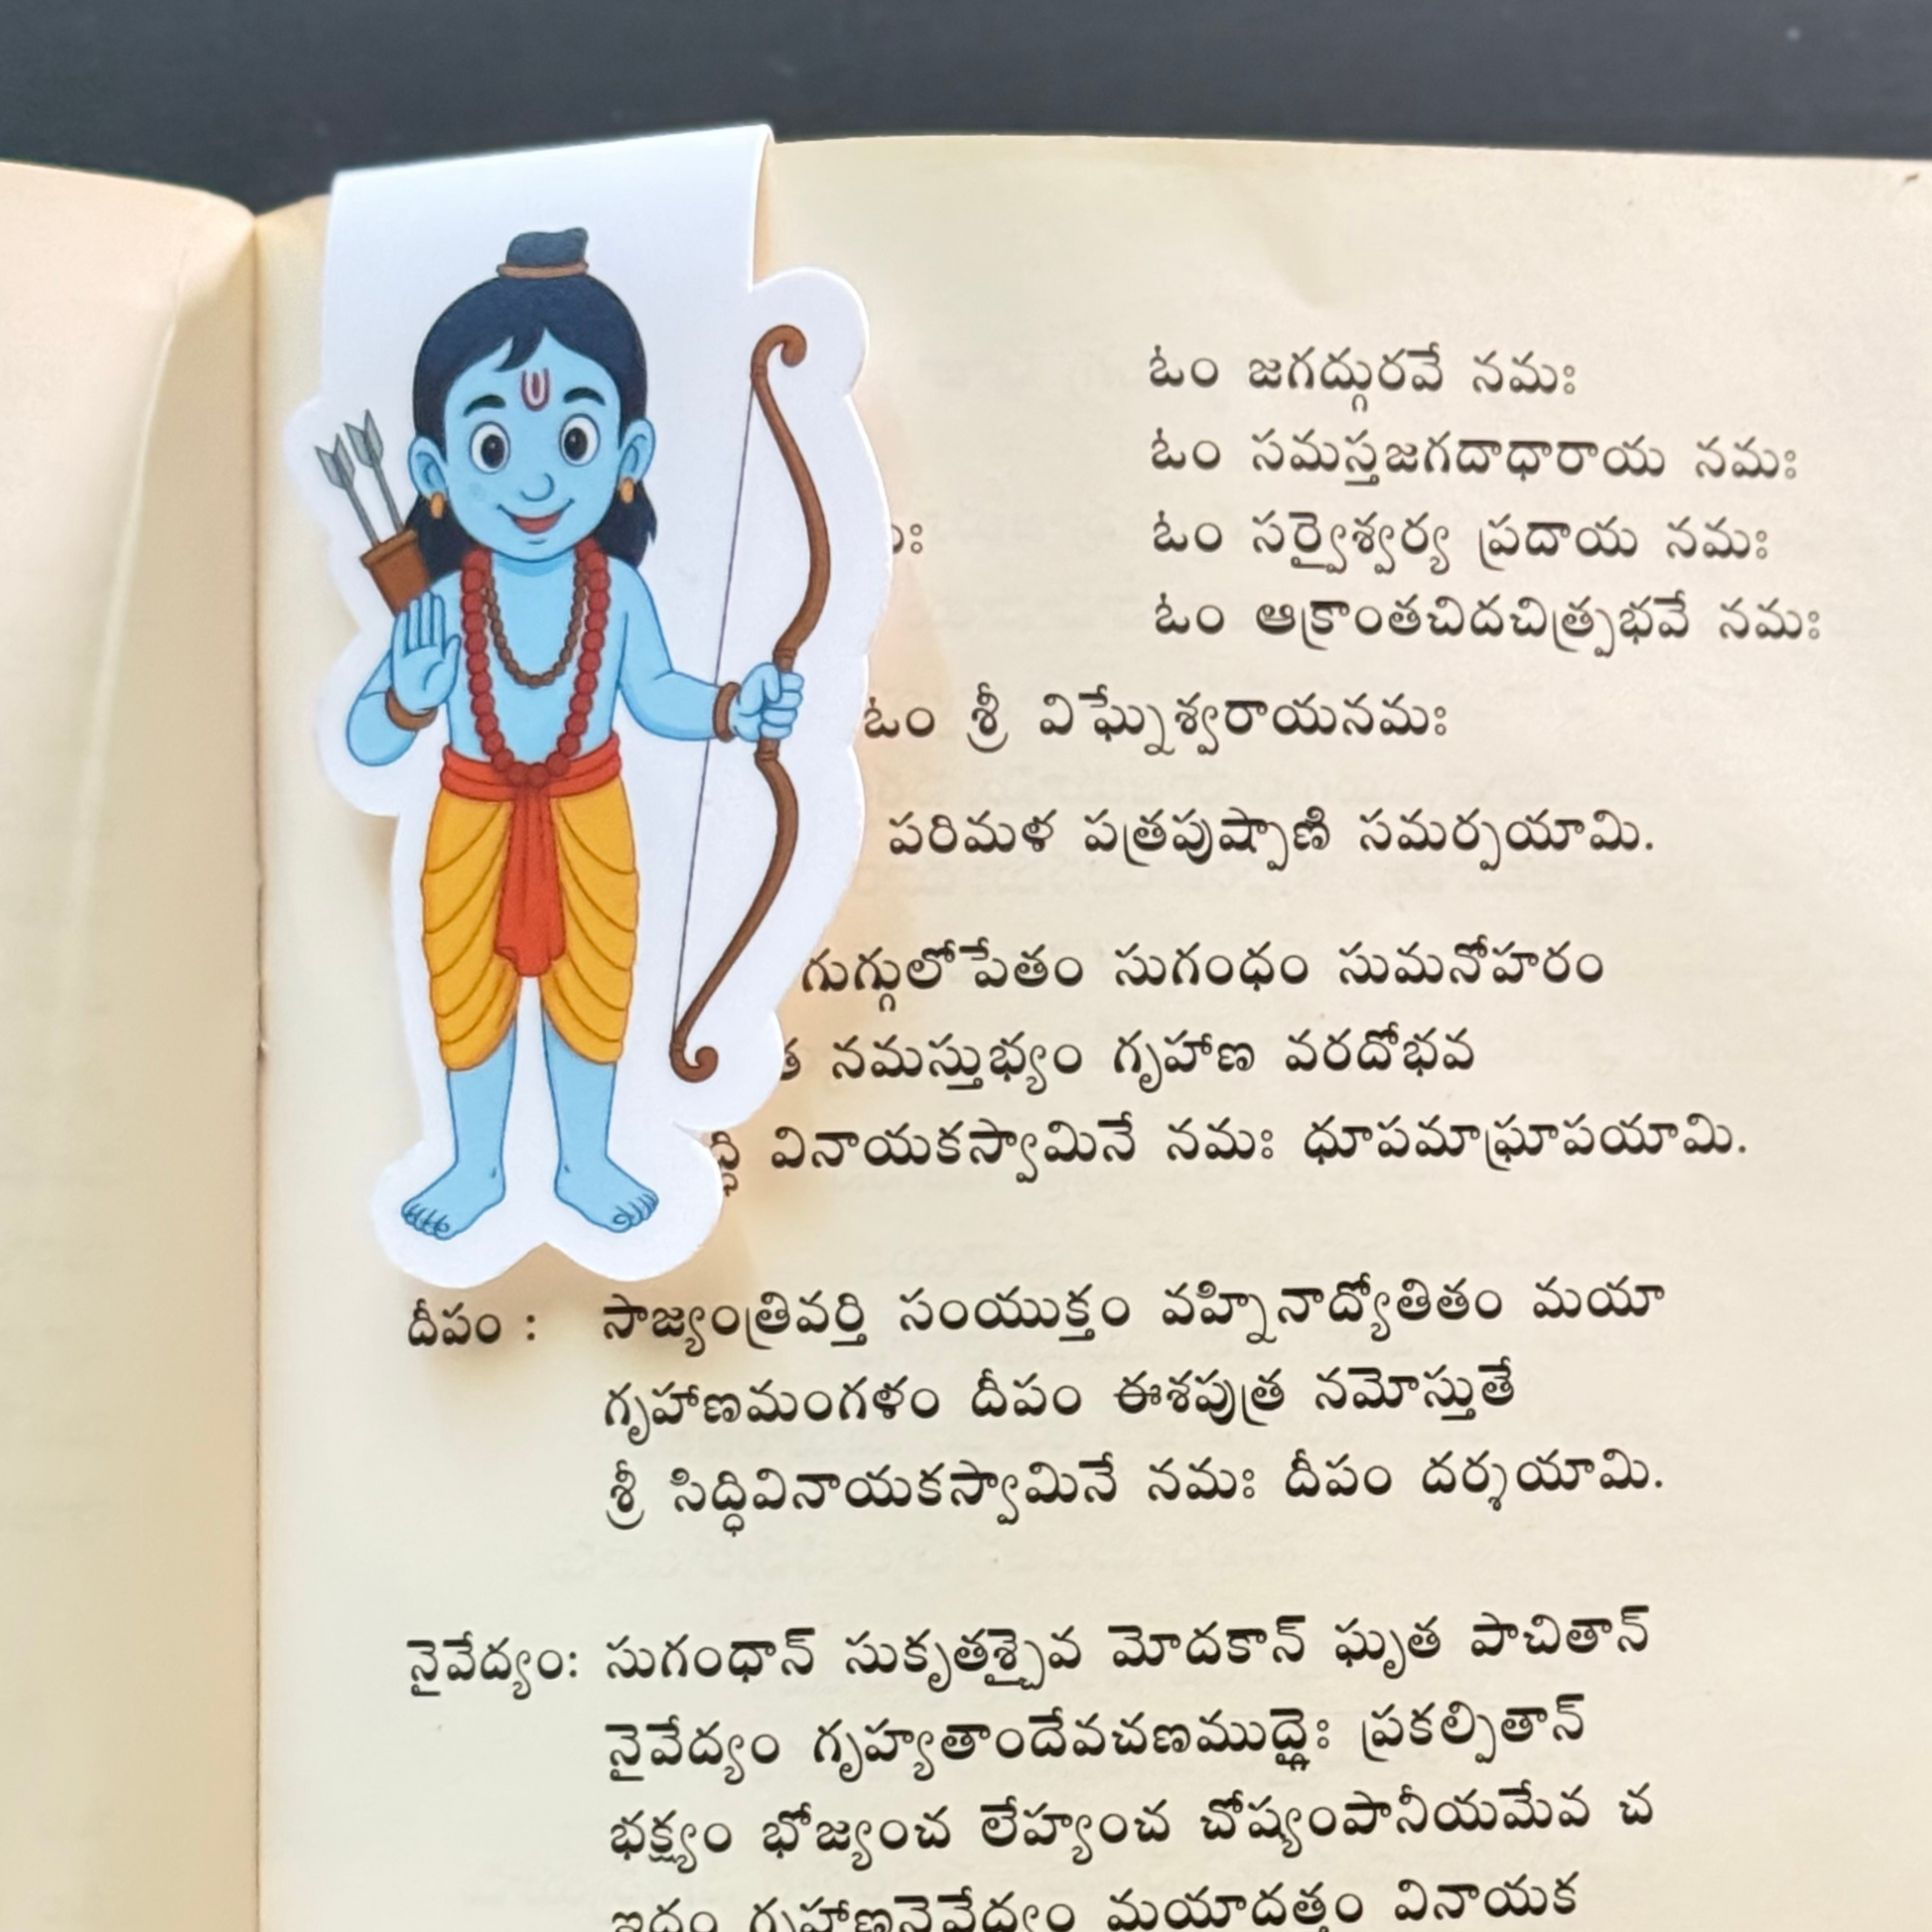 ఓం జగద్గురవే నమః
ఓం సమస్తజగదాధారాయ నమః
ఓం సర్వైశ్వర్య ప్రదాయ నమః
ఓం ఆక్రాంతచిదచిత్ప్రభవే నమః
ఓం శ్రీ విఘ్నేశ్వరాయనమః
పరిమళ పత్రపుష్పాణి సమర్పయామి.
గుగ్గులోపేతం సుగంధం సుమనోహరం
నమస్తుభ్యం గృహాణ వరదోభవ
వినాయకస్వామినే నమః ధూపమాఘ్రాపయామి.
దీపం : సాజ్యంత్రివర్తి సంయుక్తం వహ్నినాద్యోతితం మయా
గృహాణమంగళం దీపం ఈశపుత్ర నమోస్తుతే
శ్రీ సిద్ధివినాయకస్వామినే నమః దీపం దర్శయామి.
నైవేద్యం: సుగంధాన్ సుకృతశ్చైవ మోదకాన్ ఘృత పాచితాన్
నైవేద్యం గృహ్యతాందేవచణముద్గైః ప్రకల్పితాన్
భక్ష్యం భోజ్యంచ లేహ్యంచ చోష్యంపానీయమేవ చ
ఇదం గృహాణనైవేద్యం మయాదత్తం వినాయక